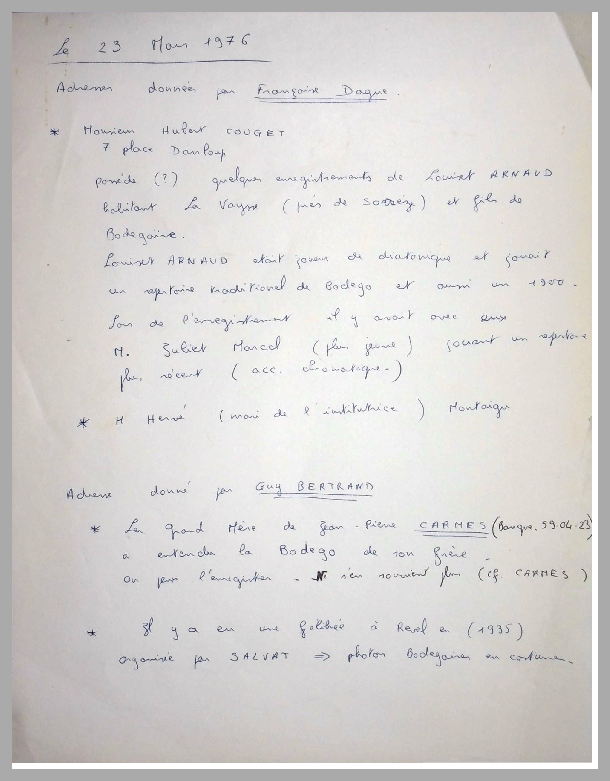 Le 23 Mars 1976
Adresses donnée par Françoise Dague.
* Monsieur Hubert COUGET
7 place Dauloup
possède (?) quelques enregistrements de Louiset ARNAUD
habitant La Vaysse (près de Sorèze) et fils de
Bodegaire.
Louiset ARNAUD etait joueur de diatonique et jouait
un repertoire traditionel de Bodego et aussi un 1900.
Lors de l'enregistrement il y avait avec eux
M. Juliet Marcel (plus jeune) jouant un repertoire
plus récent (acc. chromatique.)
* M Hervé (mari de l'institutrice) Montaigu
Adresse donné par Guy BERTRAND
* La grand Mère de Jean-Pierre CARMES (Banque. 59.04.23)
a entendu la Bodego de son frère.
On peut l'enregistrer. s'en souvient plus (cf. CARMES)
* Il y a eu une félibrée à Revel en (1935)
organisée par SALVAT ⇒ photos Bodegaires en costumes.